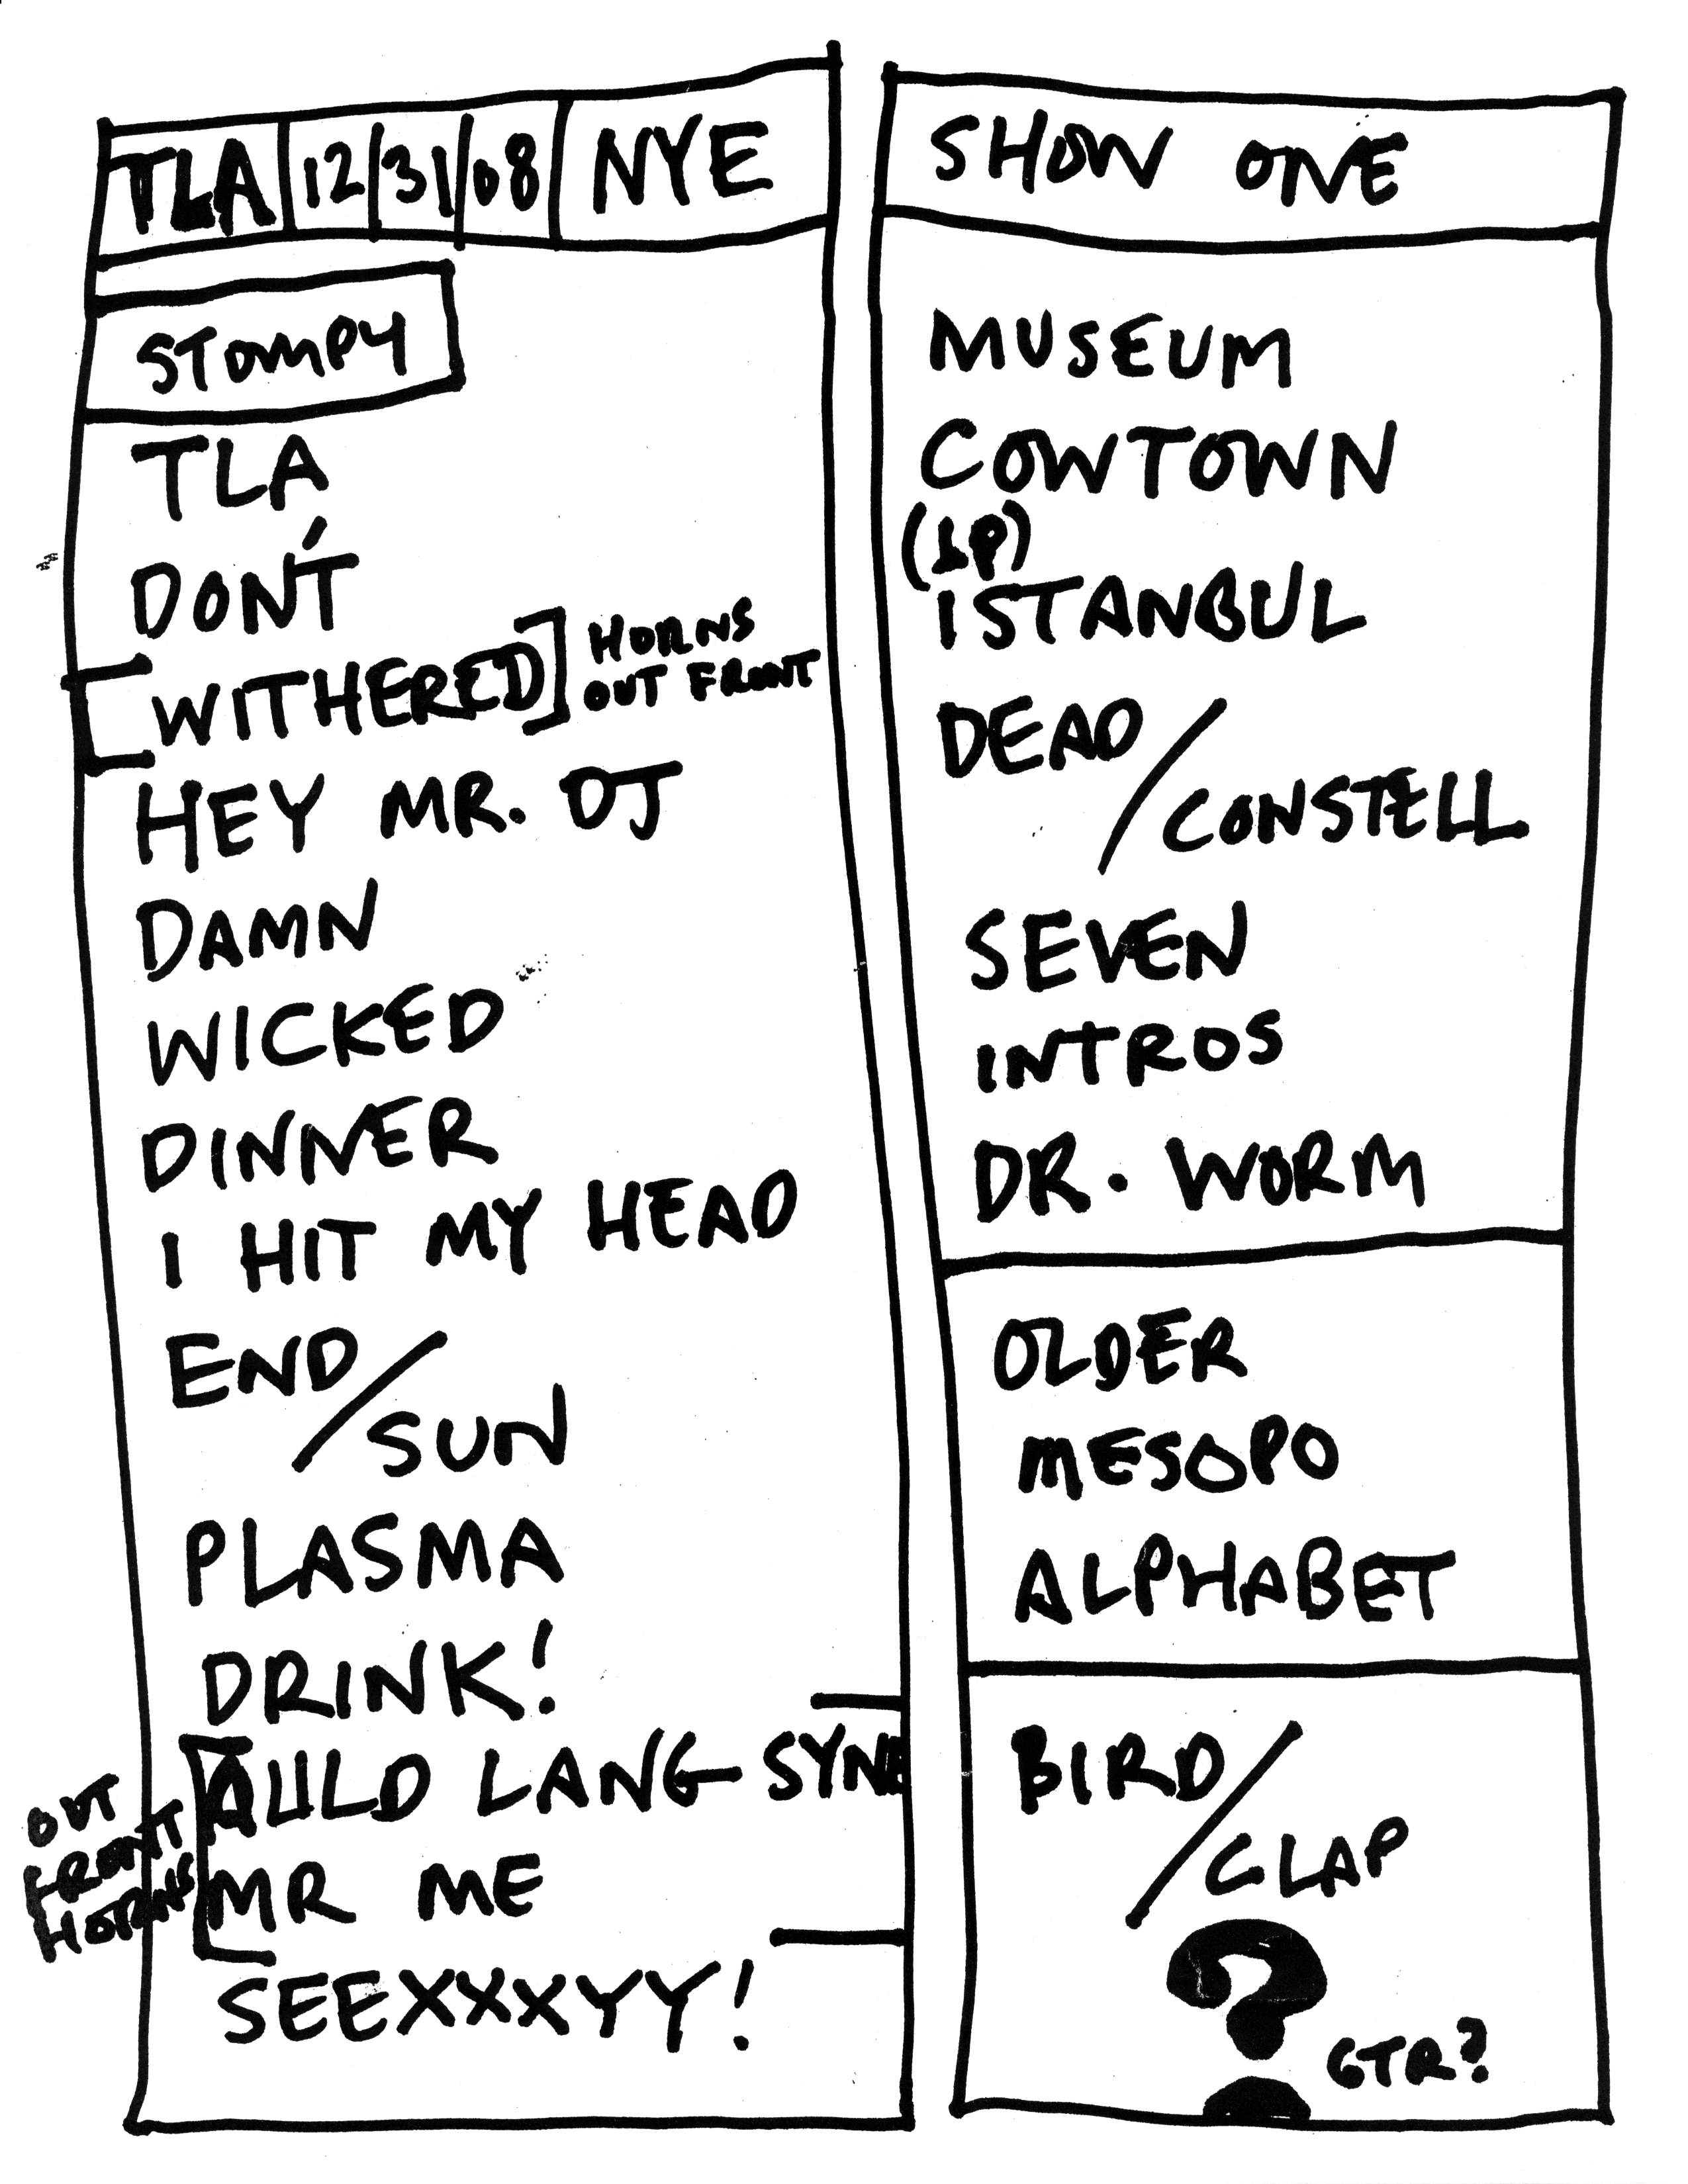 TLA 12/31/08 NYE
STOMPY
TLA
DON'T
[WITHERED] HORNS
OUT FRONT
HEY MR. DJ
DAMN
WICKED
DINNER
I HIT MY HEAD
END/
SUN
PLASMA
DRINK!
AULD LANG SYNE
OUT
FRONT
HORNS
MR ME
SEEXXXYY!
SHOW ONE
MUSEUM
COWTOWN
(LP)
ISTANBUL
DEAD/
CONSTELL
SEVEN
INTROS
DR. WORM
OLDER
MESOPO
ALPHABET
BIRD/
CLAP
?
GTR?